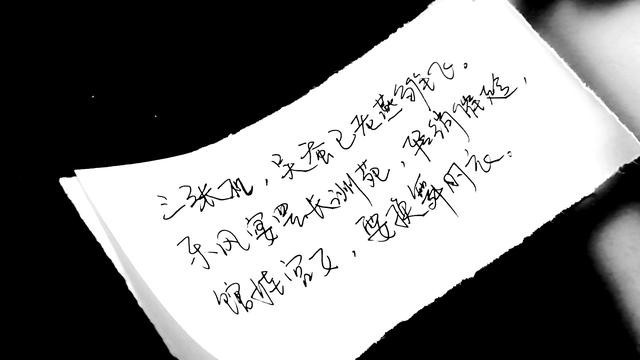 三张机，吴蚕已老燕雏飞。
东风宴罢长洲苑，轻绡催趁，
馆娃宫女，要换舞时衣。